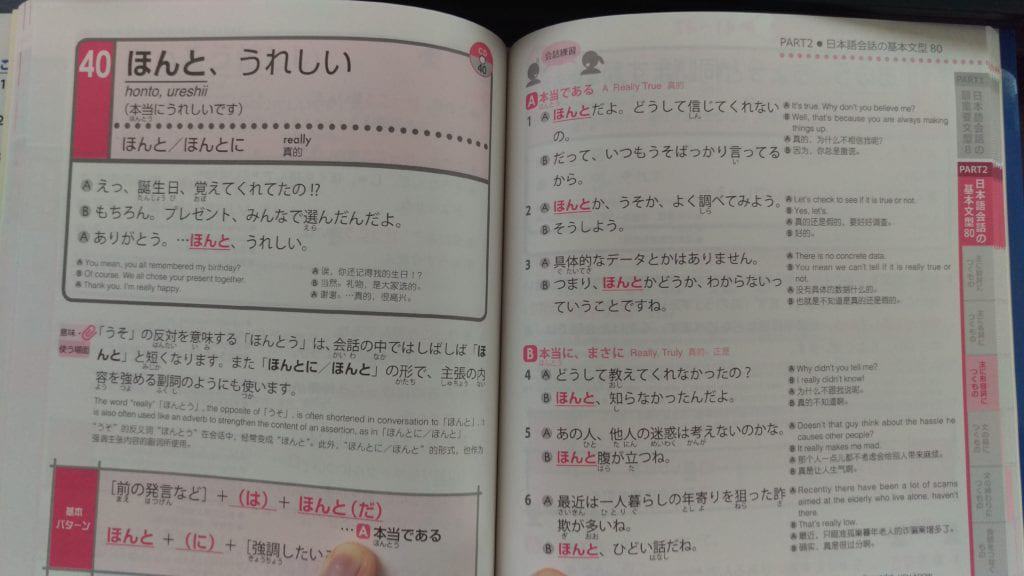 40
ほんと、うれしい
honto, ureshii
(本当にうれしいです)
ほんとう
CD
40
ほんと／ほんとに
really
真的
A えっ、誕生日、覚えてくれてたの!?
たんじょうび おぼ
B もちろん。プレゼント、みんなで選んだんだよ。
えら
A ありがとう。…ほんと、うれしい。
A You mean, you all remembered my birthday?
B Of course. We all chose your present together.
A Thank you. I'm really happy.
A 诶，你还记得我的生日！?
B 当然。礼物，是大家选的。
A 谢谢。…真的，很高兴。
意味・
使う場面
「うそ」の反対を意味する「ほんとう」は、会話の中ではしばしば「ほ
はんたい いみ かいわ なか
んと」と短くなります。また「ほんとに／ほんと」の形で、主張の内
みじか かたち しゅちょう ない
容を強める副詞のようにも使います。
よう つよ ふくし つか
The word "really"「ほんとう」, the opposite of「うそ」, is often shortened in conversation to「ほんと」, I
is also often used like an adverb to strengthen the content of an assertion, as in「ほんとに／ほんと」
"うそ" 的反义词 "ほんとう" 在会话中，经常变成 "ほんと"。此外，"ほんとに／ほんと" 的形式，也作为
强调主张内容的副词所使用。
基本
パターン
[前の発言など] + (は) + ほんと(だ)
まえ はつげん
… A 本当である
ほんとう
ほんと + (に) + [強調したい
きょうちょう
PART2 ● 日本語会話の基本文型 80
会話練習
A 本当である A Really True 真的
ほんとう
1 A ほんとだよ。どうして信じてくれない
しん
の。
B だって、いつもうそばっかり言ってる
い
から。
A It's true. Why don't you believe me?
B Well, that's because you are always making
things up.
A 真的，为什么不相信我呢?
B 因为，你总是撒谎。
2 A ほんとか、うそか、よく調べてみよう。
しら
B そうしよう。
A Let's check to see if it is true or not.
B Yes, let's.
A 真的还是假的，要好好调查。
B 好的。
3 A 具体的なデータとかはありません。
ぐたいてき
B つまり、ほんとかどうか、わからないっ
ていうことですね。
A There is no concrete data.
B You mean we can't tell if it is really true or
not.
A 没有具体的数据什么的。
B 也就是不知道是真的还是假的。
B 本当に、まさに Really, Truly 真的，正是
ほんとう
4 A どうして教えてくれなかったの？
おし
B ほんと、知らなかったんだよ。
し
A Why didn't you tell me?
B I really didn't know!
A 为什么不跟我说呢。
B 真的不知道啊。
5 A あの人、他人の迷惑は考えないのかな。
ひと たにん めいわく かんが
B ほんと腹が立つね。
はら た
A Doesn't that guy think about the hassle he
causes other people?
B It really makes me mad.
A 那个人一点儿都不考虑会给别人带来麻烦。
B 真是让人生气啊。
6 A 最近は一人暮らしの年寄りを狙った詐
さいきん ひとりぐ としよ ねら さ
欺が多いね。
ぎ おお
B ほんと、ひどい話だね。
はなし
A Recently there have been a lot of scams
aimed at the elderly who live alone, haven't
there.
B That's really low.
B 确实，真是很过分啊。
PART1
日本語会話の
PART2
日本語会話の
基本文型80
主に形容詞に
つくもの